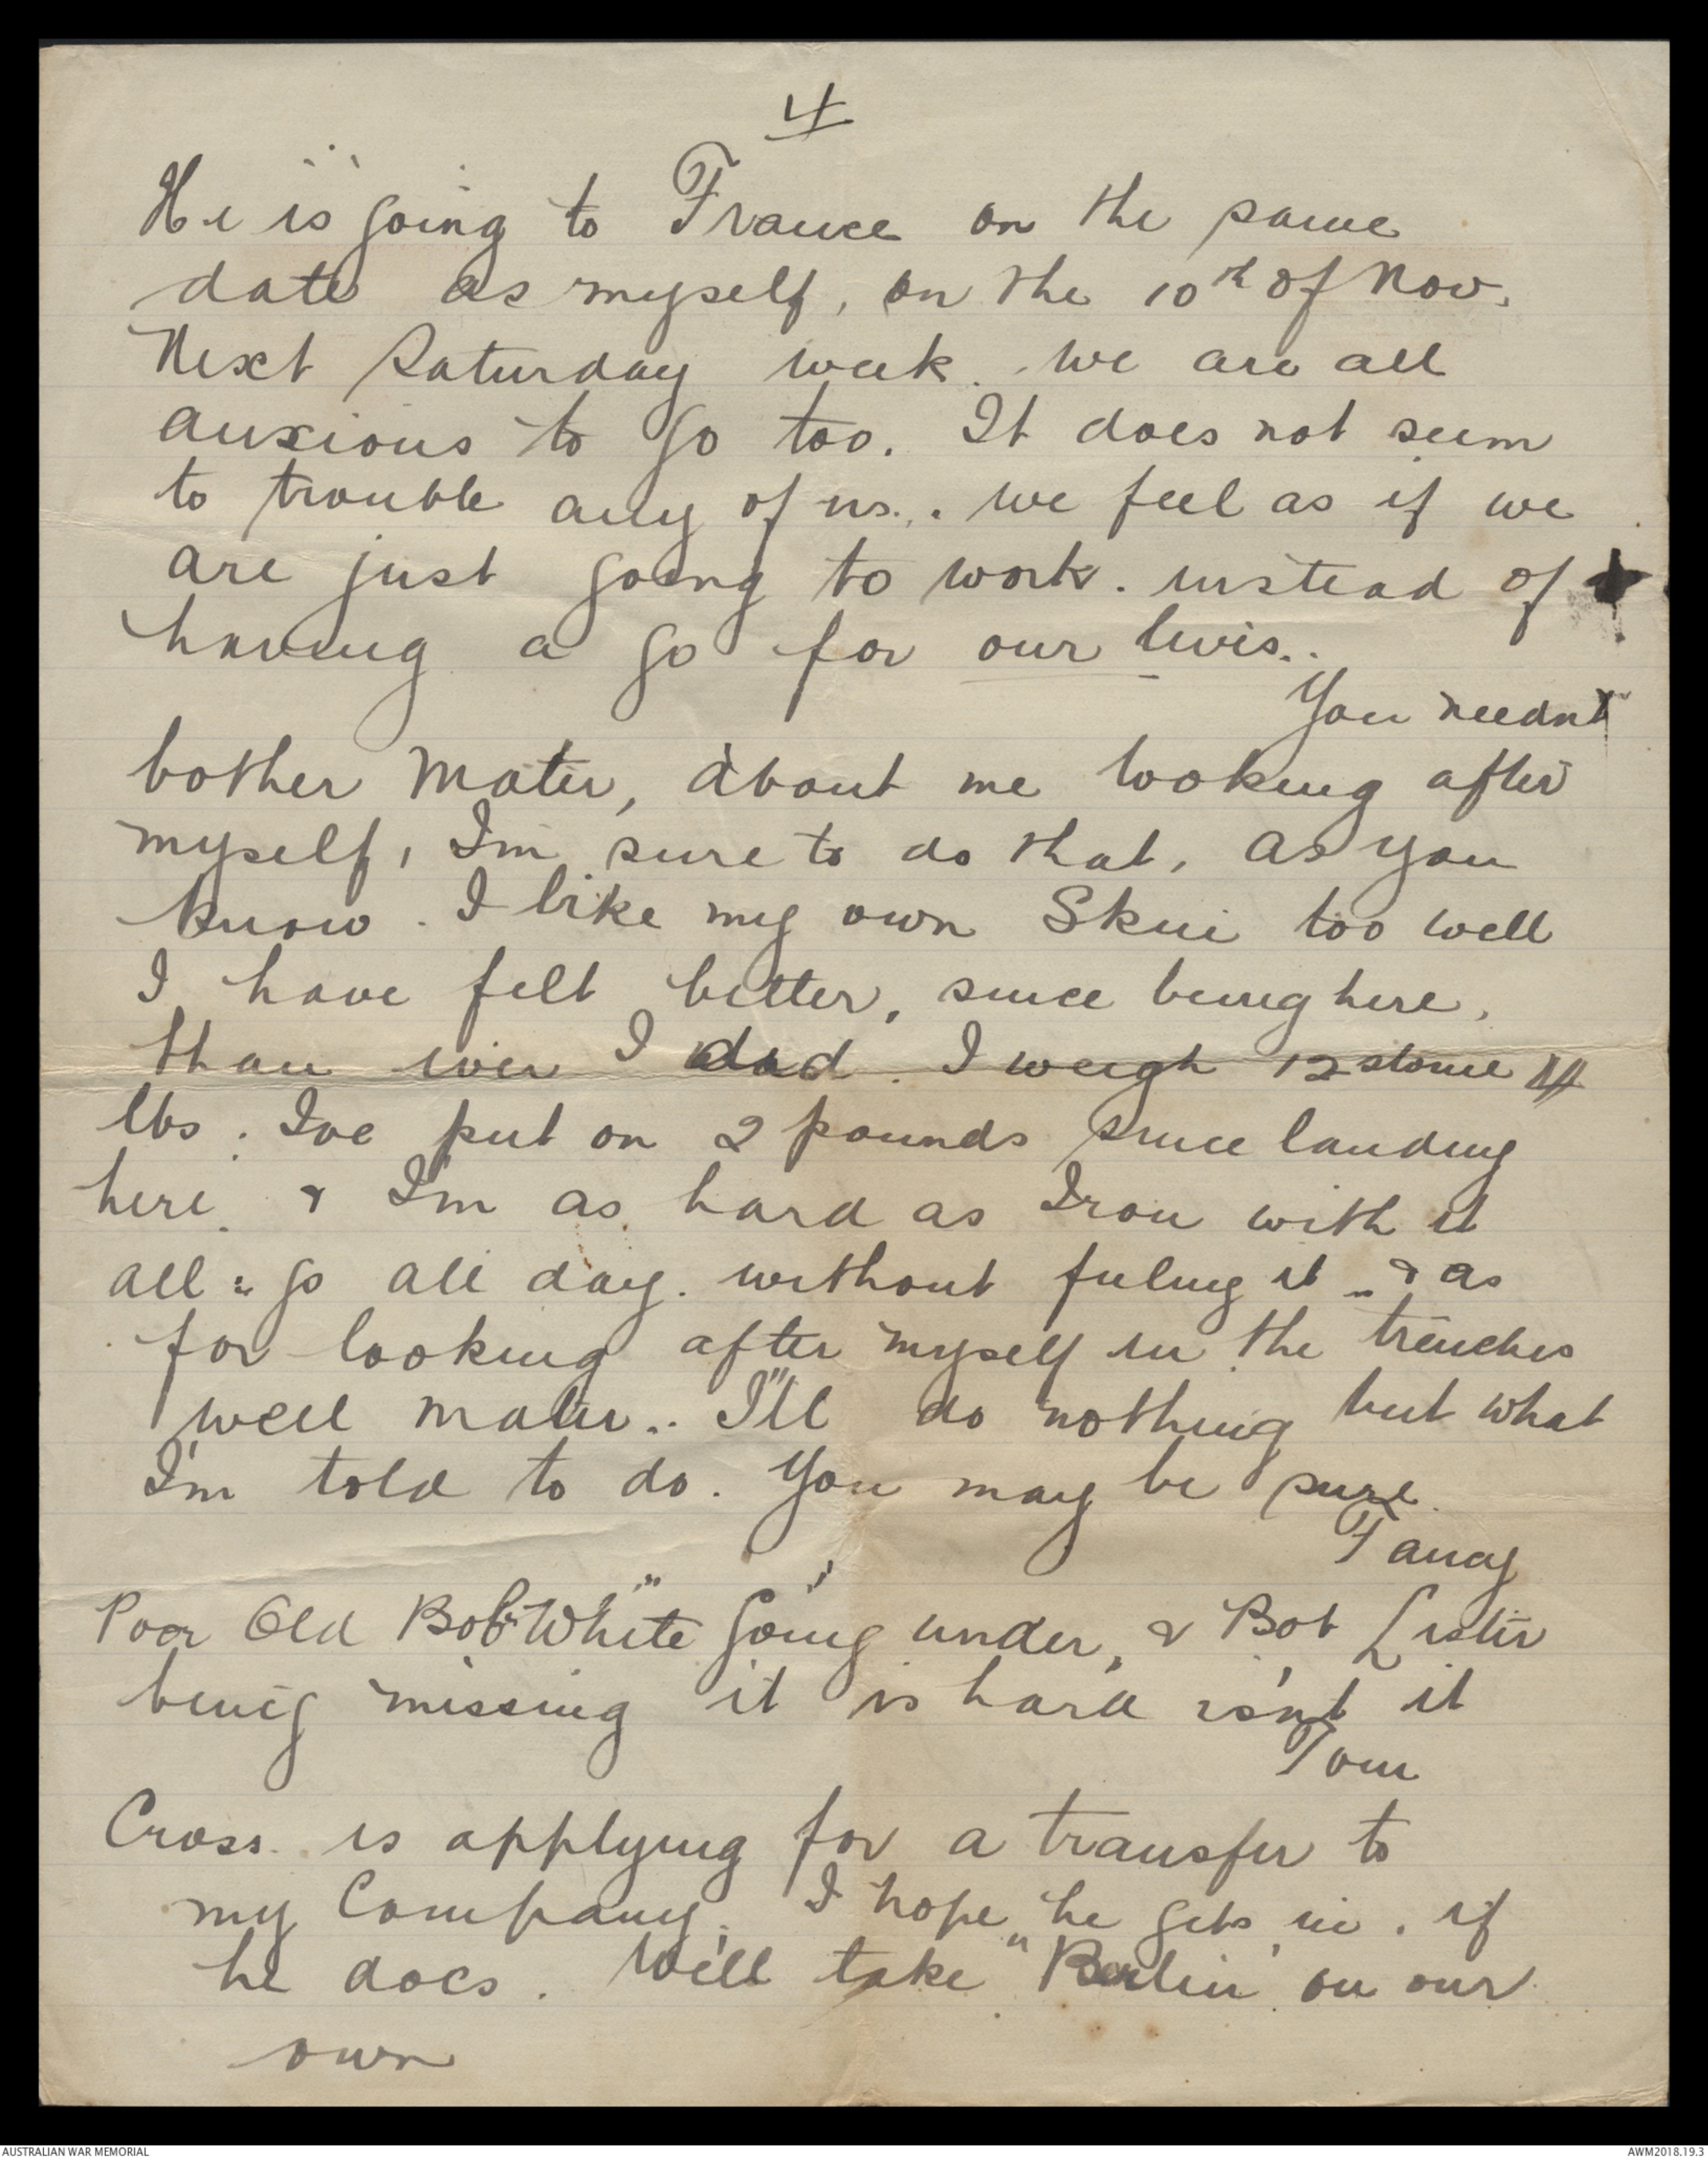 4
He is going to France on the same
date as myself, on the 10th of Nov.
Next Saturday week. We are all
anxious to go too. It does not seem
to trouble any of us.. we feel as if we
are just going to work. instead of
having a go for our lives..
You needn't
bother Mater, about me looking after
myself, I'm sure to do that, as you
know. I like my own Skin too well
I have felt better, since being here,
than ever I did. I weigh 12 stone 4
lbs. Ive put on 2 pounds since landing
here. & I'm as hard as Iron with it
all: go all day. without feeling it.. & as
for looking after myself in the trenches
well mater.. I'll do nothing but what
I'm told to do. You may be sure.
Fancy
Poor Old Bob "White" Going under, & Bob Lister
being missing it is hard isn't it
Tom
Cross. is applying for a transfer to
my Company. I hope he gets in. if
he does. We'll take "Berlin" on our
own
AUSTRALIAN WAR MEMORIAL
AWM2018.19.3